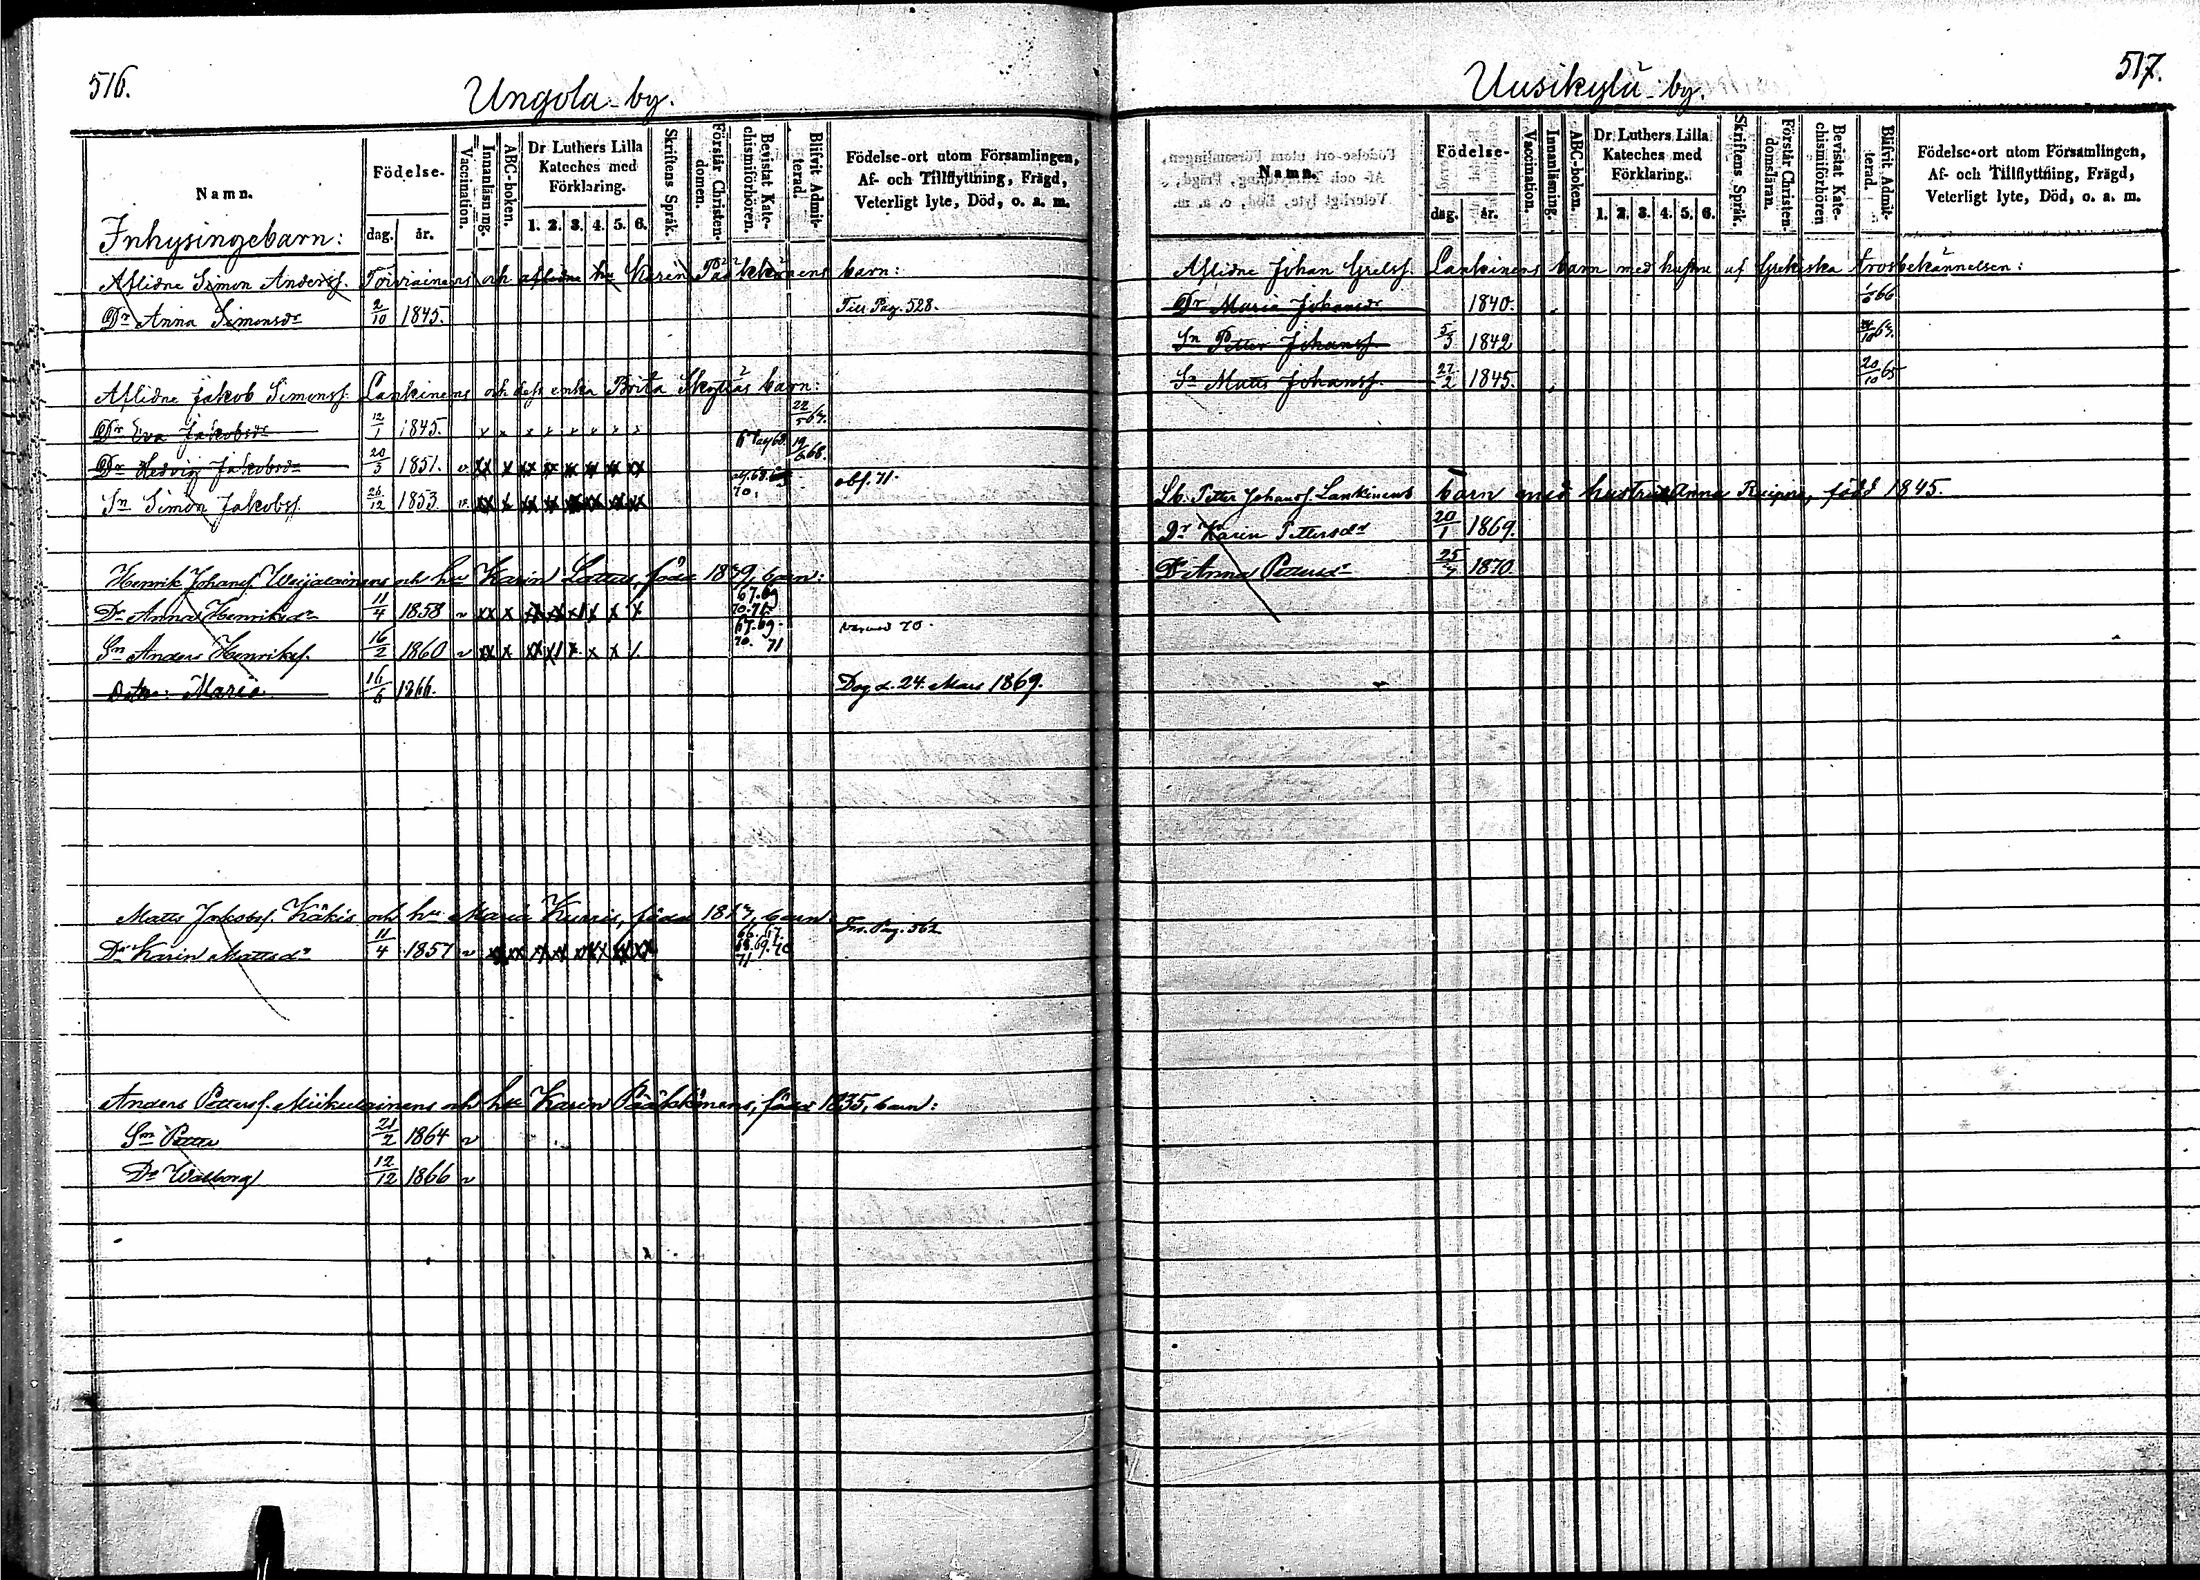 516.
Ungola by.
Namn.
Födelse-
dag. år.
Vaccination.
Innanläsning.
ABC-boken.
Dr Luthers Lilla Kateches med Förklaring.
1. 2. 3. 4. 5. 6.
Skriftens Språk.
Förstår Christendomen.
Bevistat Katechismiförhören.
Blifvit Admitterad.
Födelse-ort utom Församlingen, Af- och Tillflyttning, Frägd, Veterligt lyte, Död, o. a. m.
Inhysingebarn:
Aflidne Simon Anderss. Toivainens och aflidne hu Karin Pääkkönens barn:
Dr Anna Simonsdr 2/10 1845. Till Pag. 528.
Aflidne Jakob Simonss. Lankinens och dess enka Brita Skyttäs barn:
Dr Eva Jakobsdr 12/1 1845. x x x x x x x x 22/5 67.
Dr Hedvig Jakobsdr 20/3 1851. v. xx x xx xx xx xx xx xx 19/6 68.
Sn Simon Jakobss. 26/12 1853. v. xx x xx xx xx xx xx xx 70. obs. 71.
Henrik Johanss. Weijalainens och hu Karin Lattus, född barn:
Dr Anna Henriksdr 11/4 1858 v xx x 67.69 70.71
Sn Anders Henrikss. 16/2 1860 v xx x 67.69. 70. 71 70.
Maria 16/6 1866. Dog d. 24. Mars 1869.
Matts Jakobss. Käkis och hu Maria Kurris, född barn
Dr Karin Mattsdr 11/4 1857 v 66.67. 68.69.70 71 Pag. 562
Anders Petterss. Miikulainens och hu Karin Pääkkönens, född 1835, barn:
Sn Petter 21/2 1864 v
Dr Walborg 12/12 1866 v
517.
Uusikylä by.
Namn.
Födelse-
dag. år.
Vaccination.
Innanläsning.
ABC-boken.
Dr Luthers Lilla Kateches med Förklaring.
1. 2. 3. 4. 5. 6.
Skriftens Språk.
Förstår Christendomsläran.
Bevistat Katechismiförhören
Blifvit Admitterad.
Födelse-ort utom Församlingen, Af- och Tillflyttning, Frägd, Veterligt lyte, Död, o. a. m.
Aflidne Johan Grelss. Lankinens barn med hustru af Grekiska trosbekännelsen:
Dr Maria Johansdr 1840. 66
Sn Petter Johanss. 5/3 1842
Sn Matts Johanss. 27/2 1845. 20/10 65
Petter Johanss. Lankinens barn med hustru Anna Reipin, född 1845.
Dr Karin Pettersdr 20/1 1869.
Dr Anna Pettersdr 1870